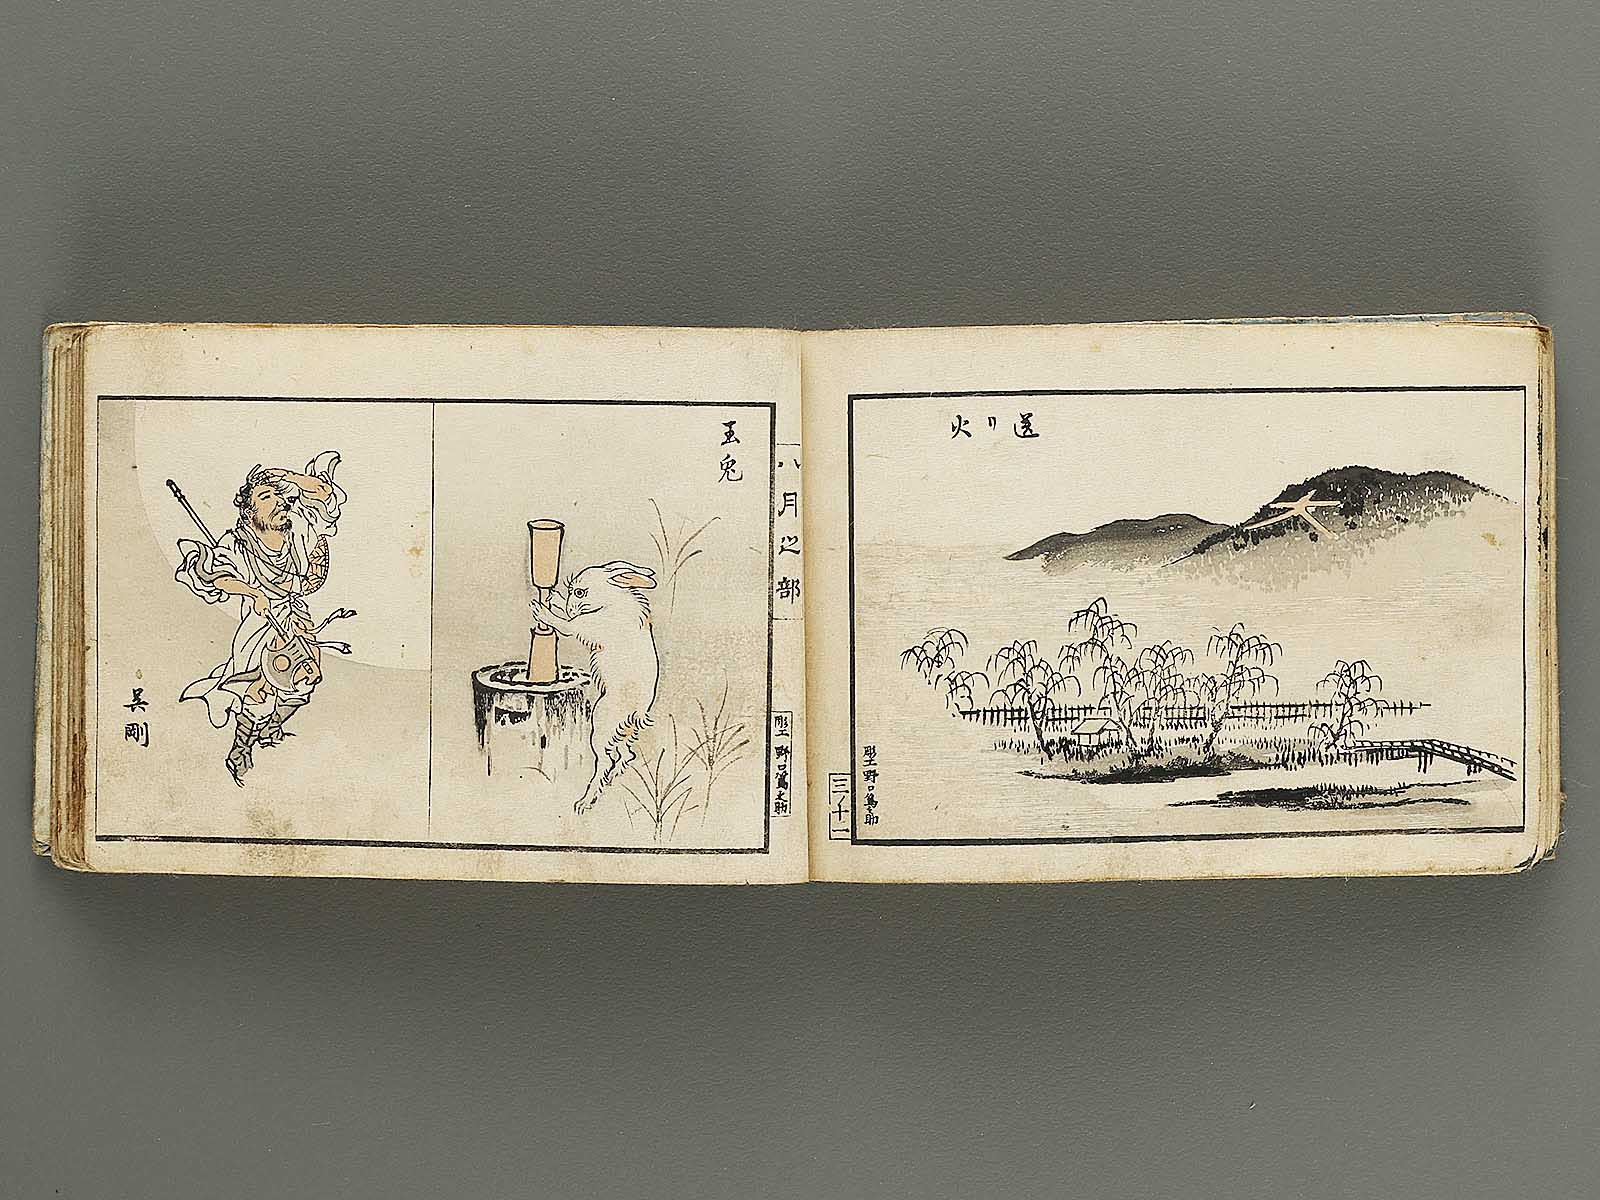 送リ火
彫工野口篤之助
三ノ十一
八月之部
彫工野口篤之助
玉兎
呉剛